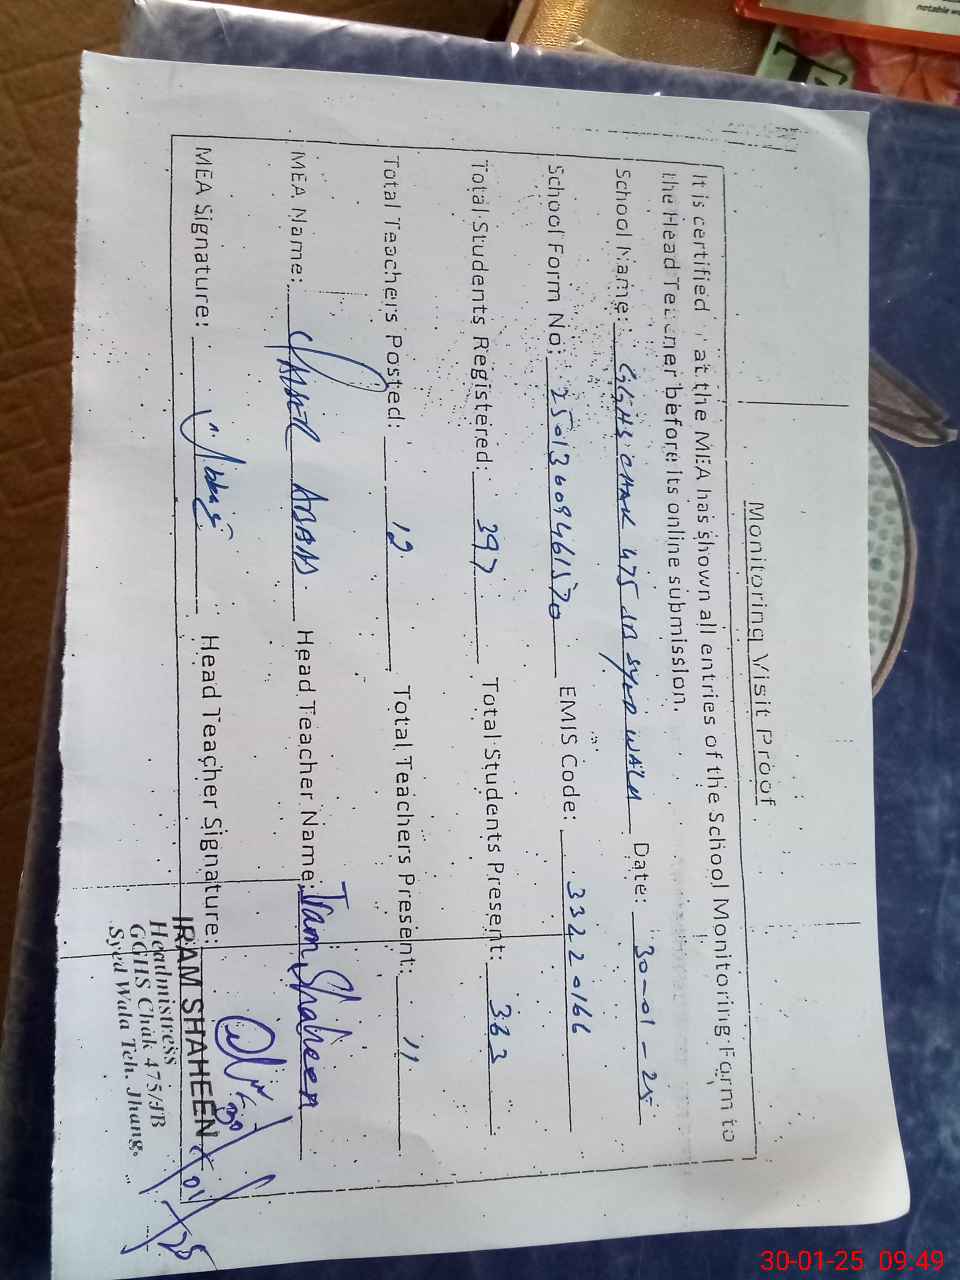 notable
Monitoring Visit Proof
It is certified at the MEA has shown all entries of the School Monitoring Form to
the Head Teacher before its online submission.
School Name: GGHS CHAK 475 JB SYED WALA Date: 30-01-25
School Form No: EMIS Code: 33220166
Total Students Registered: 397 Total Students Present: 363
Total Teachers Posted: 12 Total Teachers Present: 11
MEA Name: ABBAS Head Teacher Name: Iram Shaheen
MEA Signature: Head Teacher Signature:
IRAM SHAHEEN
Headmistress
GGHS Chak 475/JB
Syed Wala Teh. Jhang.
30-01-25 09:49